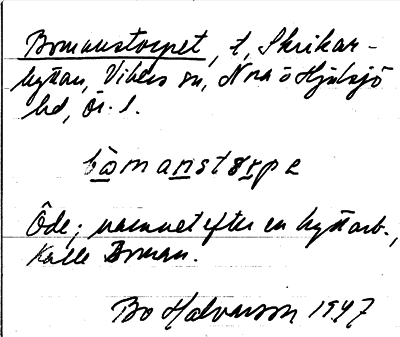 Bomanstorpet, t, Skrikar-
hyttan, Vikers sn, Nora o Hjulsjö
hd, Ör. l.
bòmanstårpe
Öde; namnet efter en hyttarb.,
Kalle Boman.
Bo Halvarsson 1947